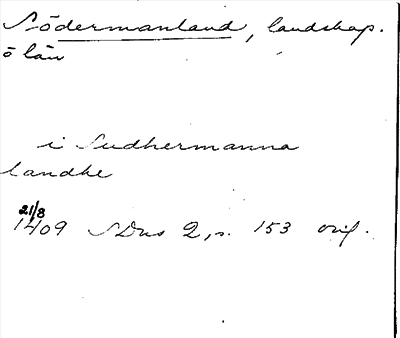 Södermanland, landskap.
ö län
i Sudhermanna
landhe
21/8
1409 SDns 2, s. 153 orig.